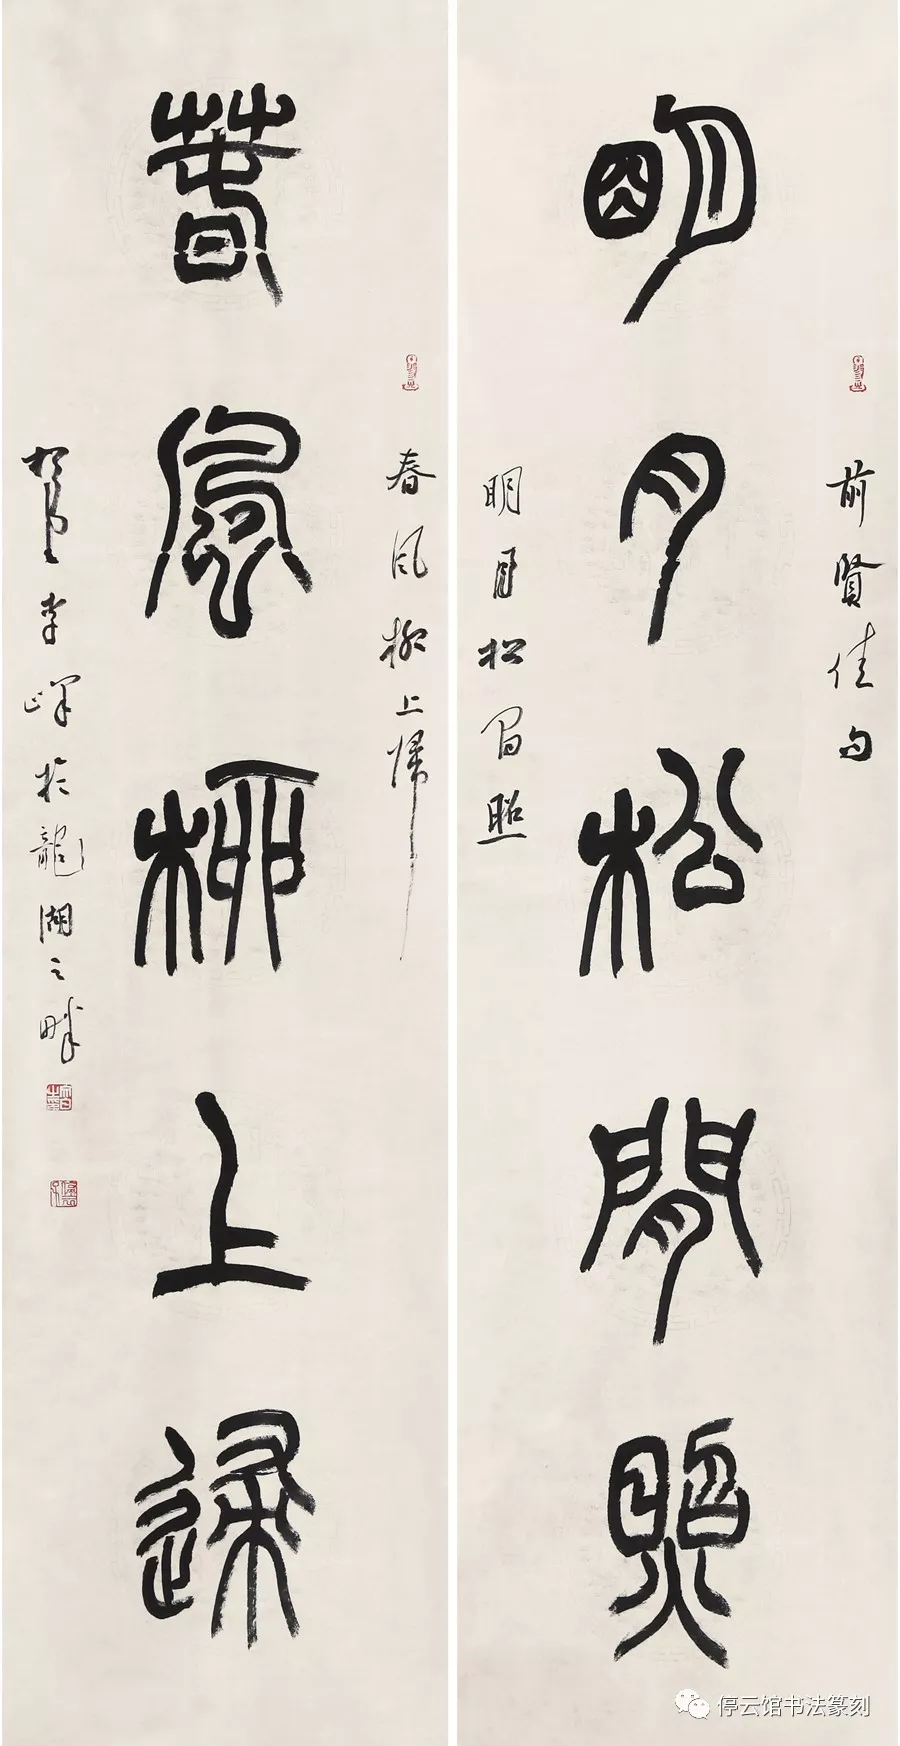 前賢佳句
明月松閒照
明月松間照
春風柳上歸
春風柳上歸
李嶧於龍湖之畔
停云馆书法篆刻